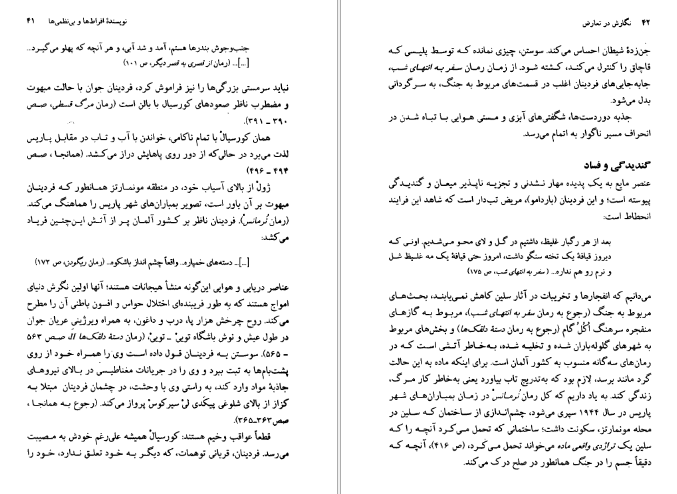 نویسندهٔ افراط‌ها و بی‌نظمی‌ها ۴۱
جنب‌وجوش بندرها هستم، آمد و شد آبی، و هر آنچه که پهلو می‌گیرد...
[...] (رمان از قصری به قصر دیگر، ص ۱۰۱)
نباید سرمستی بزرگی‌ها را نیز فراموش کرد، فردینان جوان با حالت مبهوت
و مضطرب ناظر صعودهای کورسیال با بالن است (رمان مرگ قسطی، صص
۳۹۰ ـ ۳۹۱).
همان کورسیالْ با تمام ناکامی، خواندن با آب و تاب در مقابل پاریس
لذت می‌برد در حالی‌که از دور روی پاهایش دراز می‌کشد. (همانجا، صص
۴۹۴ ـ ۴۹۶)
ژولْ از بالای آسیاب خود، در منطقه مونمارتز همانطور که فردینان
مبهوت بر آن باور است، تصویر بمباران‌های شهر پاریس را هماهنگ می‌کند.
(رمان نُرمانس). فردینان ناظر بر کشور آلمان پر از آتش این‌چنین فریاد
می‌کشد:
[...] دسته‌های خمپاره... واقعاً چشم انداز باشکوه... (رمان ریگودن، ص ۱۷۳)
عناصر دریایی و هوایی این‌گونه منشأ هیجانات هستند؛ آنها اولین نگرش دنیای
امواج هستند که به طور فریبنده‌ای اختلال حواس و افسون باطنی آن را مطرح
می‌کند. روح چرخش هزار پا، درب و داغون، به همراه ویرژینی عریان جوان
در طول عیش و نوش باشگاه تویْ - تویْ، (رمان دستهٔ دلقک‌ها II صص ۵۶۳
- ۵۶۵). سوستن پی فردینان قول داده است وی را همراه خود از روی
پشت‌بام‌ها به ثبت ببرد و وی را در جریانات مغناطیسی در بالای نیروهای
جاذبهٔ مواد وارد کند، به راستی وی با وحشت، در چشمان فردینان مبتلا به
کزاز از بالای شلوغی پیکَدی لیْ سیرکوسْ پرواز می‌کند. (رجوع به همانجا،
صص۳۶۳ـ۳۶۵).
قطعاً عواقب وخیم هستند: کورسیالْ همیشه علی‌رغم خودش به مصیبت
می‌رسد. فردینان، قربانی توهمات، که دیگر به خود تعلق ندارد، خود را
۴۲ نگارش در تعارض
جن‌زدهٔ شیطان احساس می‌کند. سوستن، چیزی نمانده که توسط پلیسی که
قاچاق را کنترل می‌کند، کشته شود. از زمان رمان سفر به انتهای شب،
جابه‌جایی‌های فردینان اغلب در قسمت‌های مربوط به جنگ، به سرگردانی
بدل می‌شود.
جذبه دوردست‌ها، شگفتی‌های آبزی و مستی هوایی با تباه شدن در
انحراف مسیر ناگوار به اتمام می‌رسد.
گندیدگی و فساد
عنصر مایع به یک پدیده مهار نشدنی و تجزیه ناپذیر میعان و گندیدگی
پیوسته است؛ و این فردینان (باردامو)، مریض تب‌دار است که شاهد این فرایند
انحطاط است:
بعد از هر رگبار غلیظ، داشتیم در گل و لای محو می‌شدیم. اونی که
دیروز قیافهٔ یک تخته سنگو داشت، امروز حتی قیافهٔ یک مه غلیظ شل
و نرم رو هم نداره... (سفر به انتهای شب، ص ۱۷۵)
می‌دانیم که انفجارها و تخریبات در آثار سلین کاهش نمی‌یابند، بحث‌های
مربوط به جنگ (رجوع به رمان سفر به انتهای شب)، مربوط به گازهای
منفجره سرهنگ اُکُل‌گام (رجوع به رمان دستهٔ دلقک‌ها) و بخش‌های مربوط
به شهرهای گلوله‌باران شده و تخلیه شده، به‌خاطر آتشی است که در
رمان‌های سه‌گانه منسوب به کشور آلمان است. برای اینکه ماده به این حالت
گرد مانند برسد، لازم بود که به‌تدریج تاب بیاورد یعنی به‌خاطر کار مرگ،
زندگی کند به یاد داریم که کل رمان نُرمانس در زمان بمباران‌های شهر
پاریس در سال ۱۹۴۴ سپری می‌شود، چشم‌اندازی از ساختمان که سلین در
محله مونمارتز، سکونت داشت؛ ساختمانی که تحمل می‌کرد آنچه را که
سلین یک تراژدی واقعی ماده می‌خواند تحمل می‌کرد، (ص ۴۱۶)، آنچه که
دقیقاً جسم را در جنگ همانطور در صلح درک می‌کند.